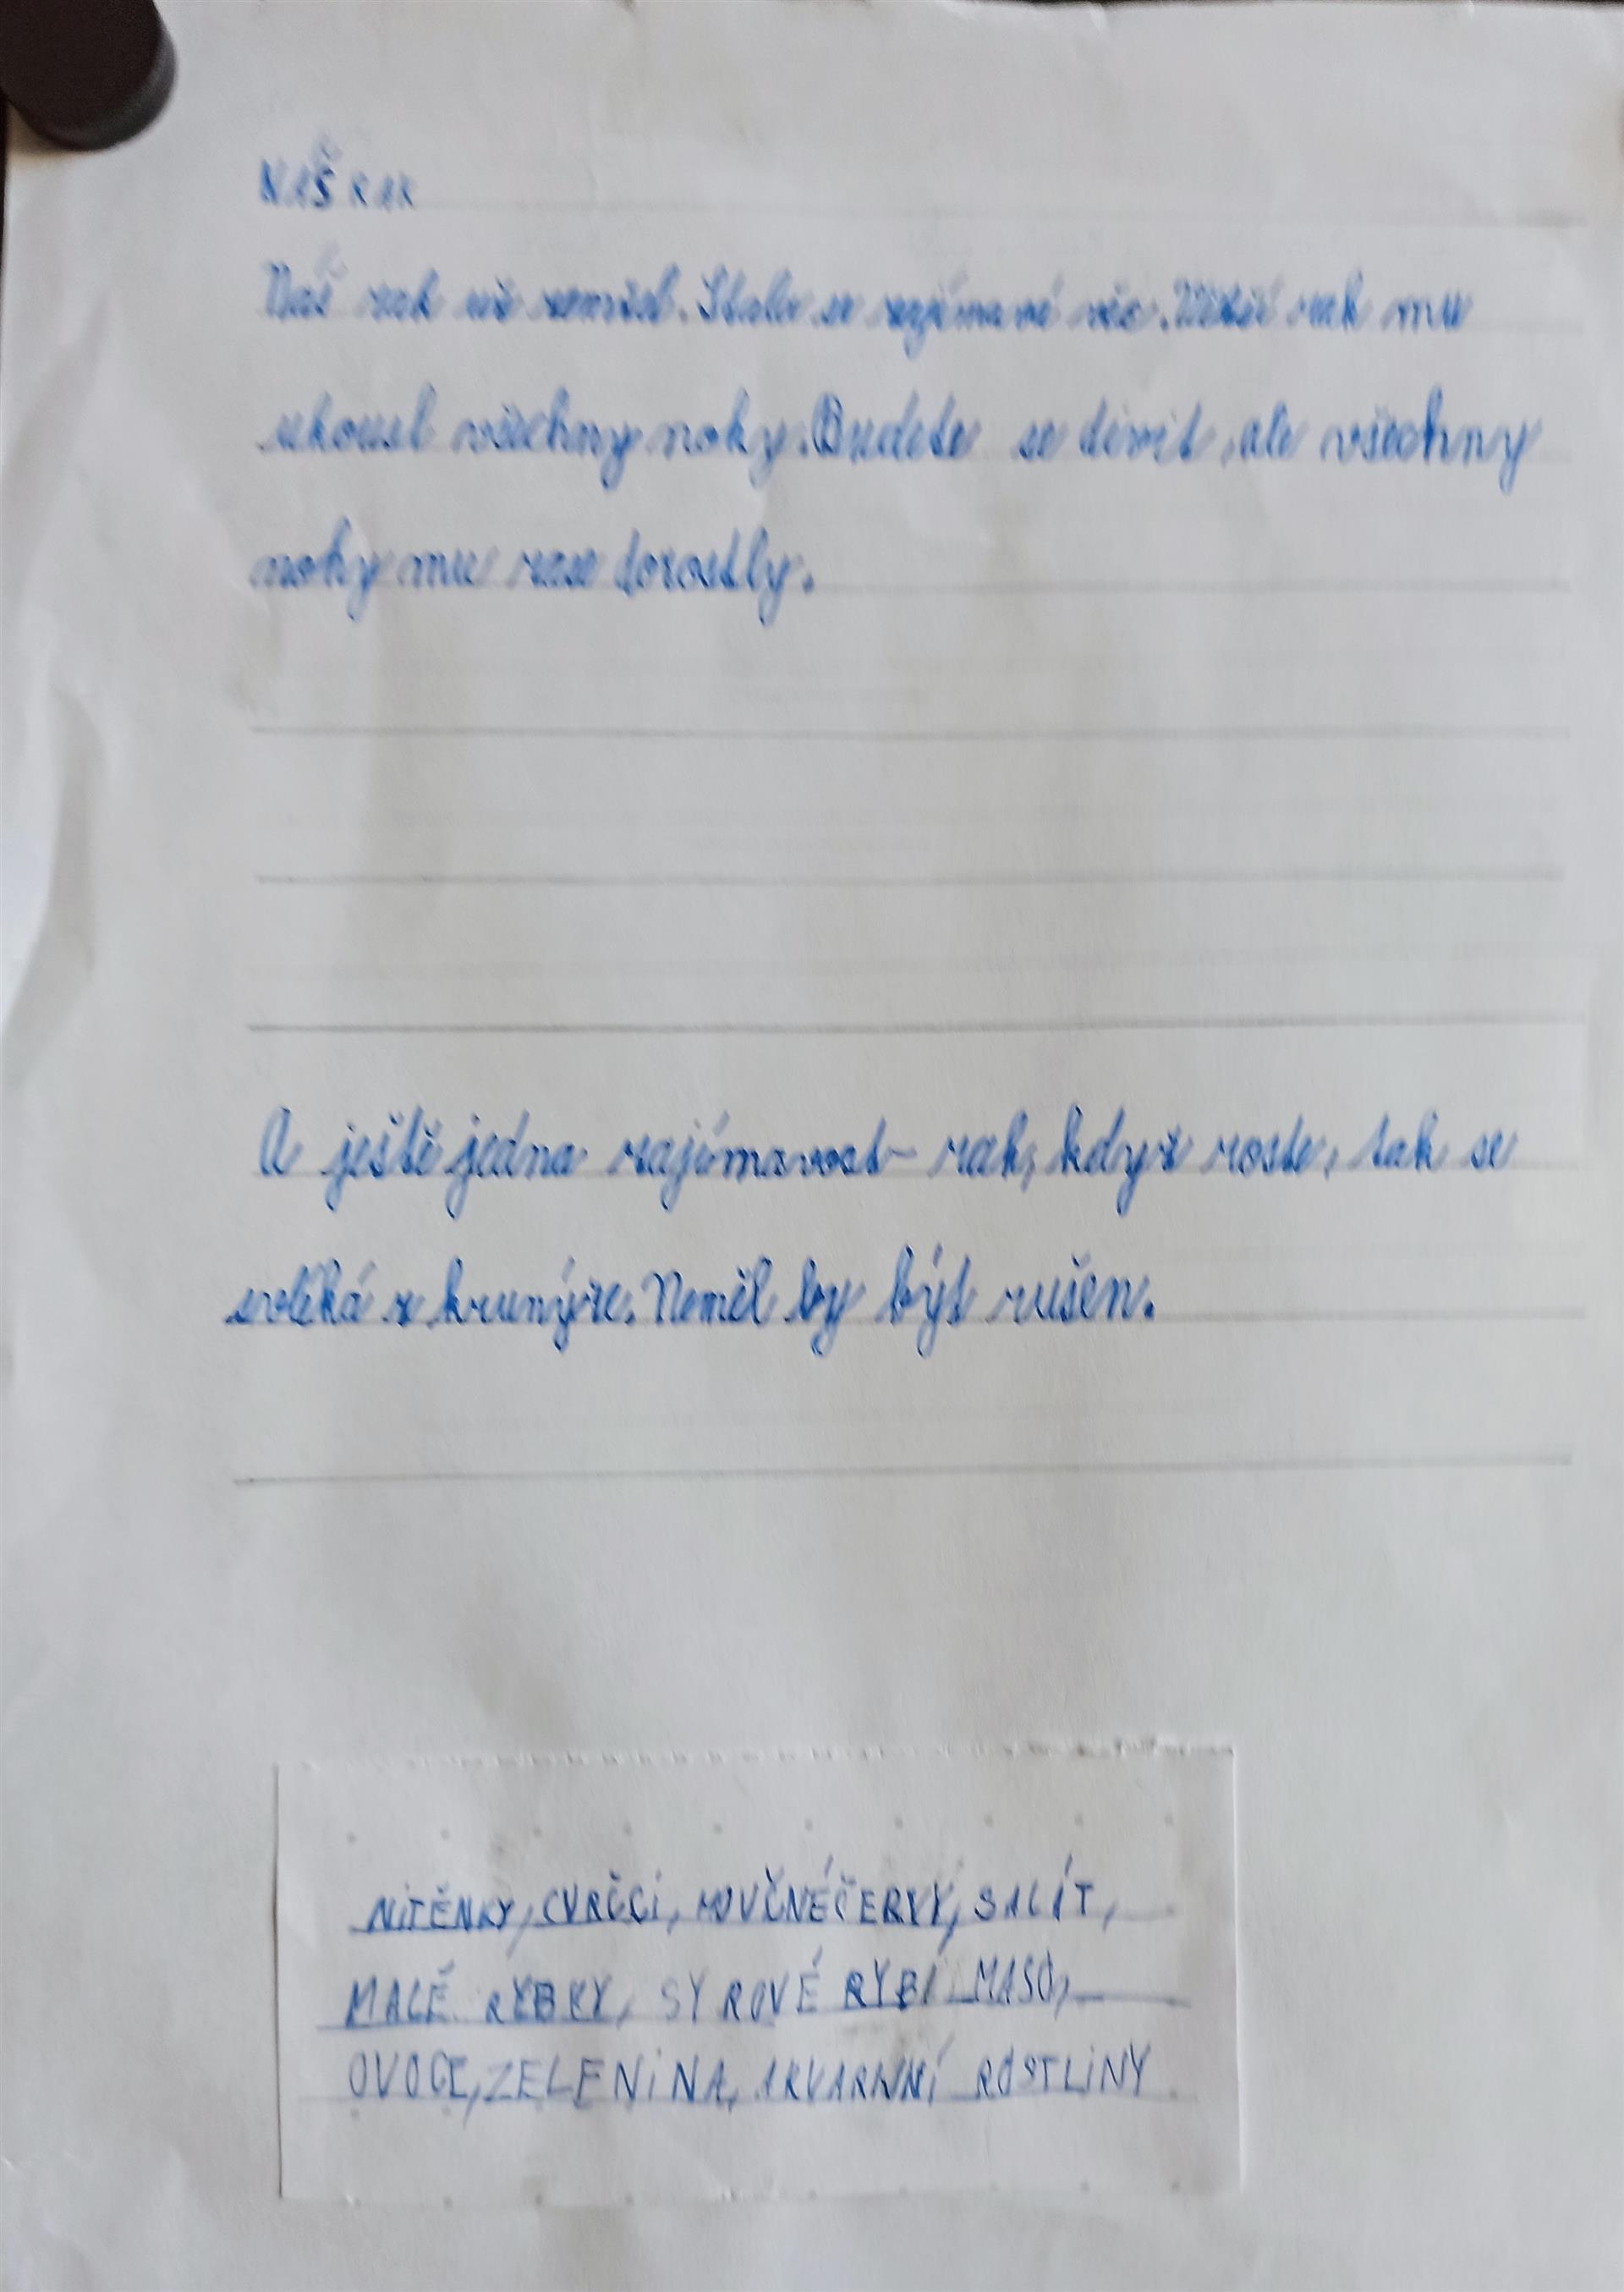 NÁŠ RAK
Náš rak už zemřel. Stala se zajímavá věc. Větší rak mu
ukousl všechny nohy. Budete se divit, ale všechny
nohy mu zase dorostly.
A ještě jedna zajímavost - rak, když roste, tak se
svléká z krunýře. Neměl by být rušen.
NITĚNKY, CVRČCI, MOUČNÉ ČERVY, SALÁT,
MALÉ RYBKY, SYROVÉ RYBÍ MASO,
OVOCE, ZELENINA, AKVARIJNÍ ROSTLINY